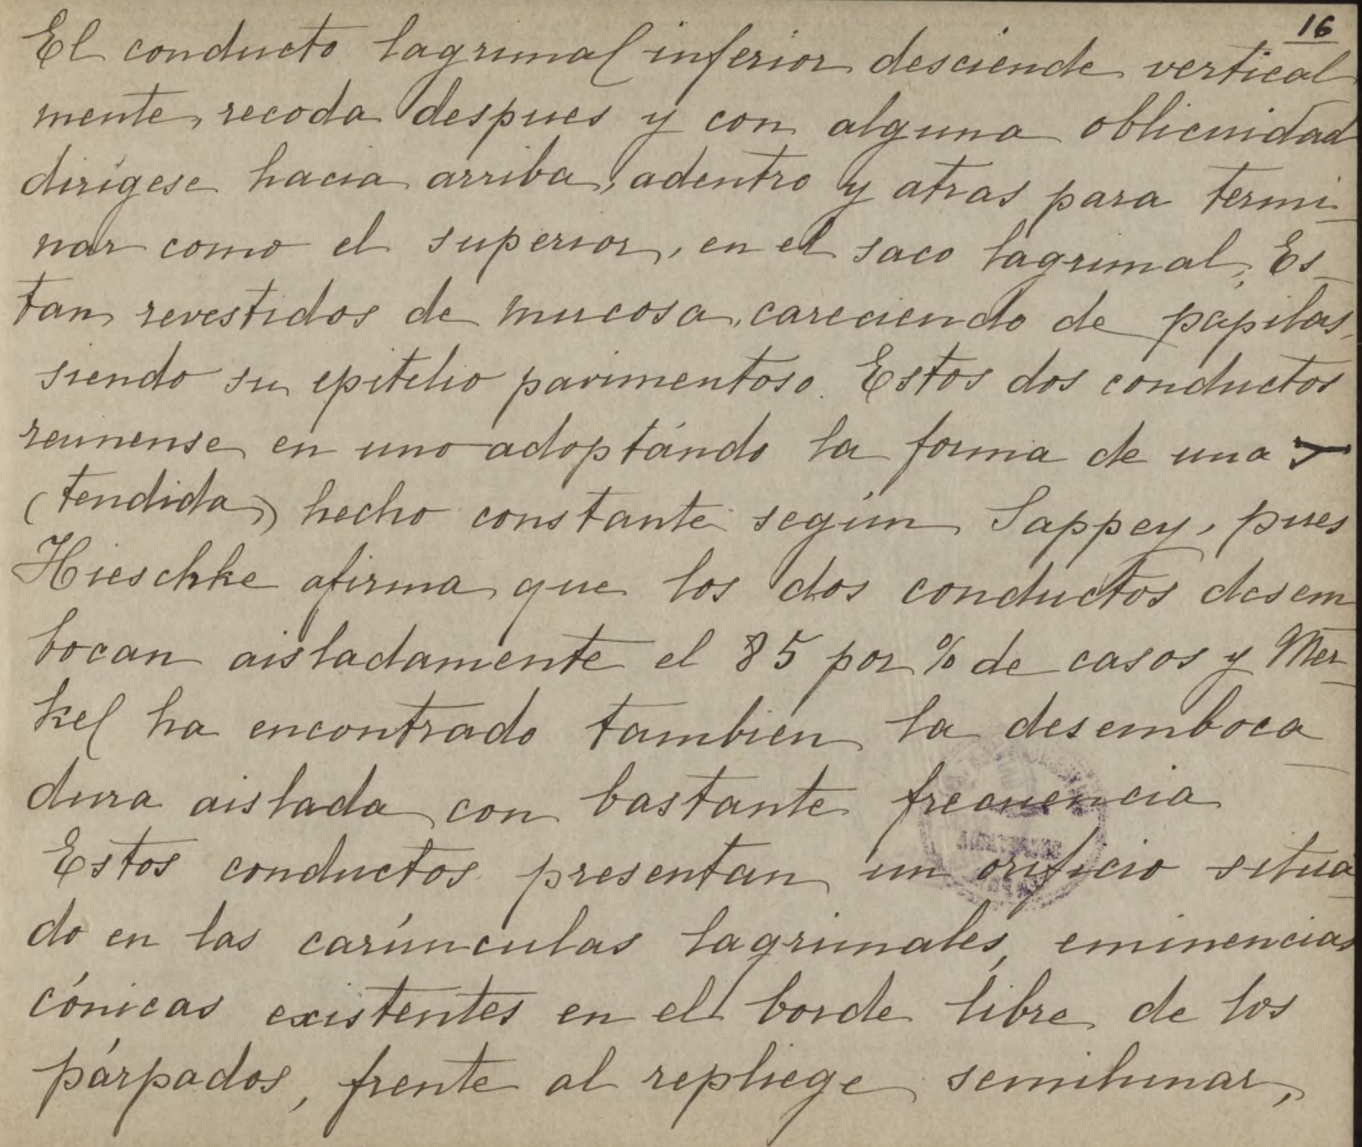 16
El conducto lagrimal inferior desciende vertical
mente, recoda despues y con alguna oblicuidad
dirígese hacia arriba, adentro y atras para termi-
nar como el superior, en el saco lagrimal, Es-
tan revestidos de mucosa, careciendo de papilas,
siendo su epitelio pavimentoso. Estos dos conductos
reunense en uno adoptándo la forma de una Y
(tendida) hecho constante según Sappey, pues
Hieschke afirma que los dos conductos desem
bocan aisladamente el 85 por % de casos y Mer-
kel ha encontrado tambien la desemboca-
dura aislada con bastante frecuencia
Estos conductos presentan un orificio situa-
do en las carúnculas lagrimales, eminencias
cónicas existentes en el borde libre de los
párpados, frente al repliege semilunar,